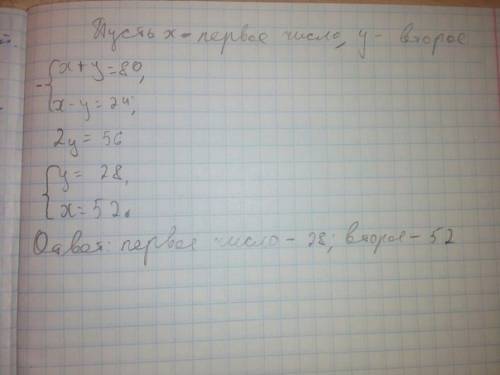 Пусть x - первое число, y - второе
- { x + y = 80,
x - y = 24;
2y = 56
{ y = 28,
x = 52.
Ответ: первое число - 28; второе - 52